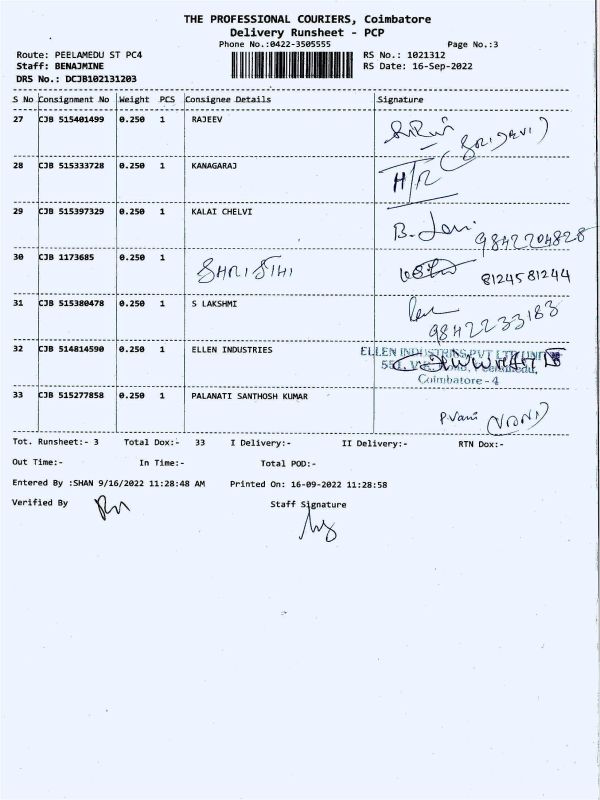 THE PROFESSIONAL COURIERS, Coimbatore
Delivery Runsheet - PCP
Phone No.:0422-3505555 Page No.:3
Route: PEELAMEDU ST PC4 RS No.: 1021312
Staff: BENAJMINE RS Date: 16-Sep-2022
DRS No.: DCJB102131203
S No Consignment No Weight PCS Consignee Details Signature
27 CJB 515401499 0.250 1 RAJEEV
(SRIDEVI)
28 CJB 515333728 0.250 1 KANAGARAJ H/R
29 CJB 515397329 0.250 1 KALAI CHELVI
9842204828
30 CJB 1173685 0.250 1 SHRISTHI
8124581244
31 CJB 515380478 0.250 1 S LAKSHMI
9842233183
32 CJB 514814590 0.250 1 ELLEN INDUSTRIES ELLEN INDUSTRIES PVT LTD UNIT
Coimbatore - 4
33 CJB 515277858 0.250 1 PALANATI SANTHOSH KUMAR
PVani (VANI)
Tot. Runsheet:- 3 Total Dox:- 33 I Delivery:- II Delivery:- RTN Dox:-
Out Time:- In Time:- Total POD:-
Entered By :SHAN 9/16/2022 11:28:48 AM Printed On: 16-09-2022 11:28:58
Verified By Staff Signature